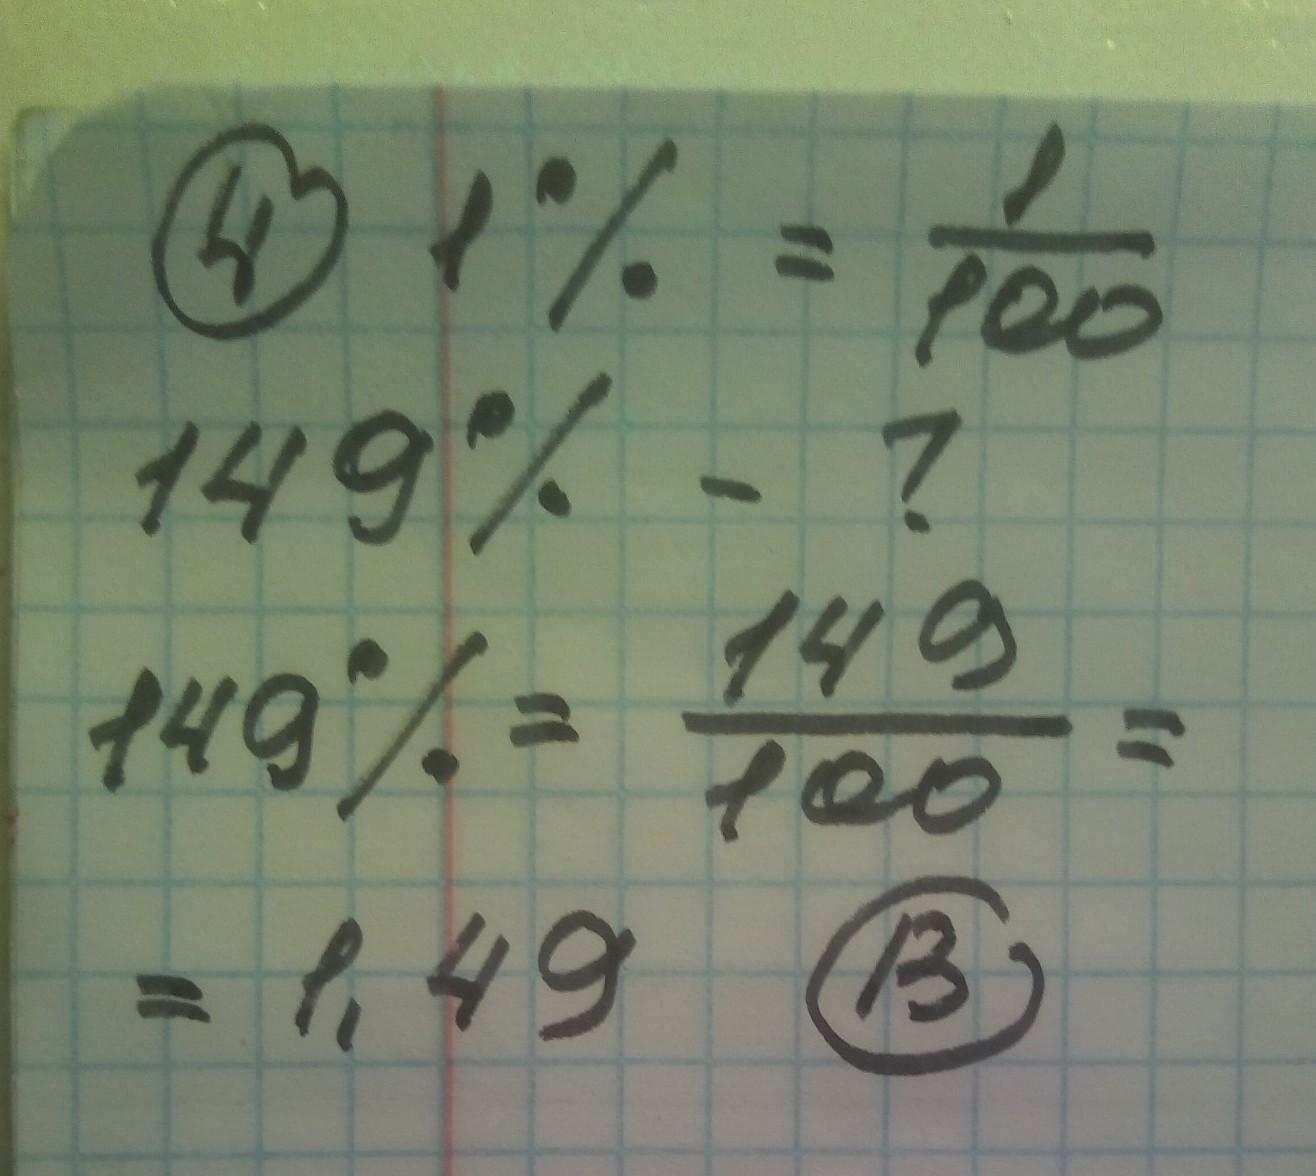 4 1% = 1/100
149% - ?
149% = 149/100 =
= 1,49 B